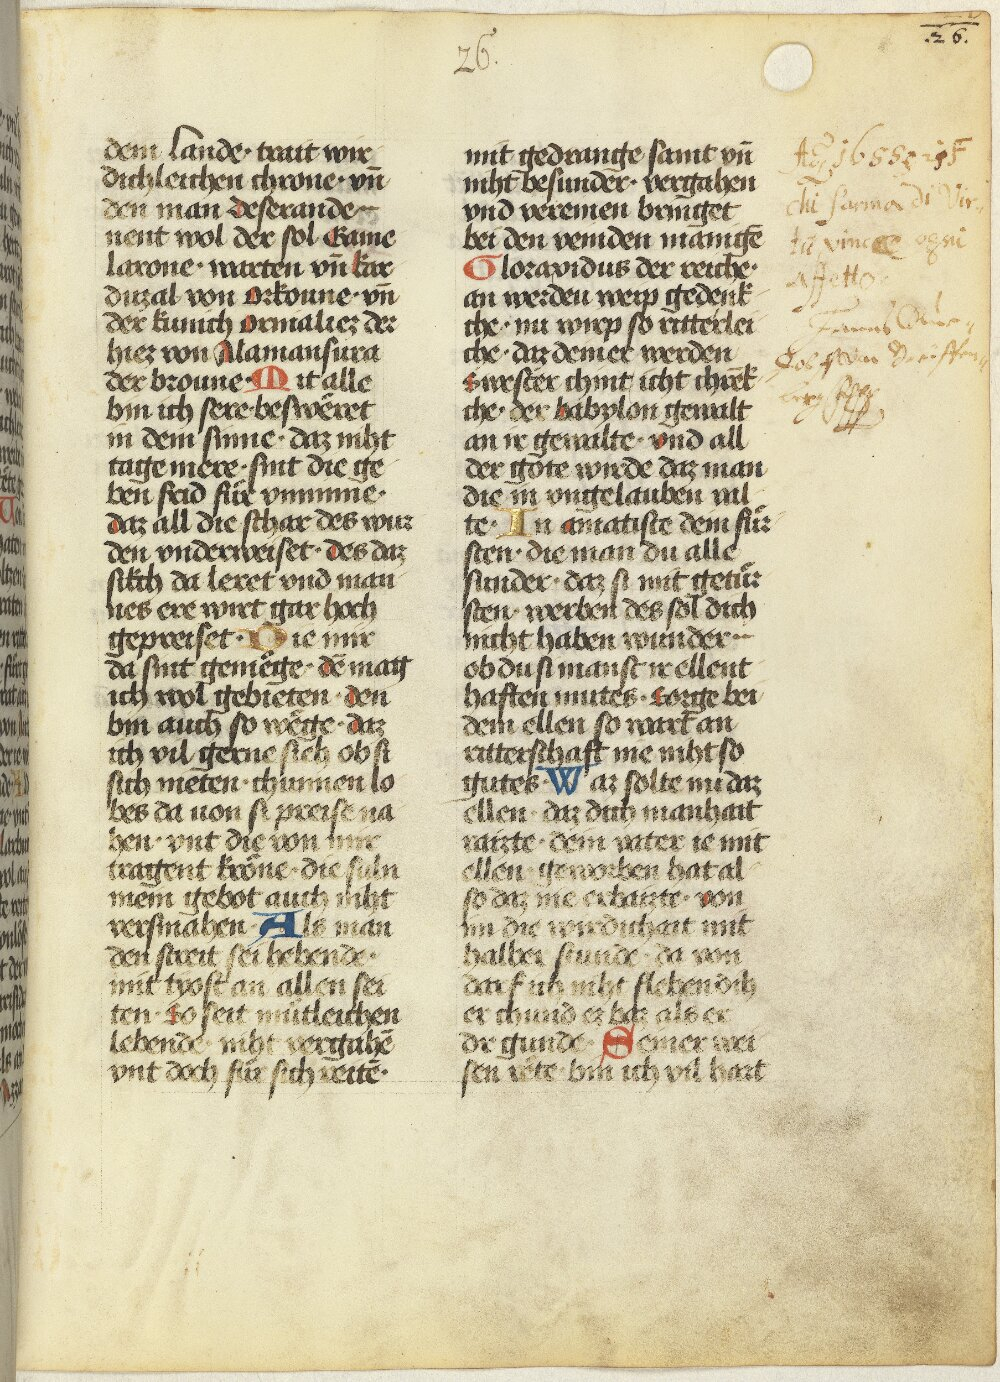 26.
.26.
dem lande · trait wir
dichleichen chrone · vn̄
den man deserande ·
nent wol der sol Kame
larone · warten vn̄ kar
duzal von orkoune · vn̄
der kunich ormaliez der
hiez von Alamansura
der broune · Mit alle
bin ich sere · beswěret
in dem sinne · daz niht
tage mere · sint die ge
ben seid für vnminne ·
daz all die schar des wur
den vnderweiset · des daz
sikch da leret vnd man
nes ere wirt gar hoch
gepreiset · Die mir
da sint genüge · dē mag
ich wol gebieten · den
bin auch so wege · daz
ich vil gerne sich ob si
sich nieten · chunnen lo
bes da uon si preise na
hen · vnt die von mir
tragent kröne · die suln
mein gebot auch niht
versmahen · Als man
den streit sei hebende ·
mit tyost an allen sei
ten · So seit mütleichen
lebende · niht vergahē
vnt doch für sich reitē ·
mit gedrange samt vn̄
niht besunder · vergahen
vnd vereinen bringet
bei den veinden manigē
Gloravidus der reiche ·
an werden weip gedenk
che · nu wirp so ritterlei
che · daz deiner werden
swester chint icht chrēk
che · der babylon gewalt
an ir gewalte · vnd all
der gote wirde daz man
die in vngelauben vil
te · In amatiste dem für
sten · die man du alle
sunder · daz si mit getür
sten · werben des sol dich
nicht haben wunder ·
ob du si manst ir ellent
haften mutes · sorge bei
dem ellen so wart an
ritterschaft nie niht so
gutes · Waz solte nu daz
ellen · daz dich manhait
raizte · dein vater ie mit
ellen · geworben hat al
so daz nie erbaizte · von
im die wirdichait mit
halber stunde · da von
darf ich niht flehen dih
er chund ez baz als er
dir gunde · Seiner wei
sen rete · bin ich vil hart
affetto